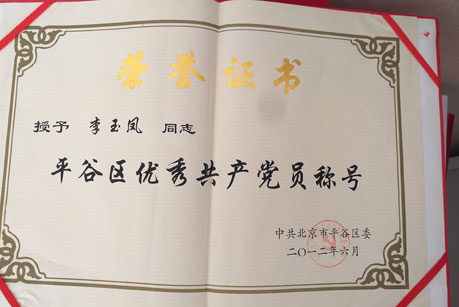 荣誉证书
授予 李玉凤 同志
平谷区优秀共产党员称号
中共北京市平谷区委
二〇一二年六月